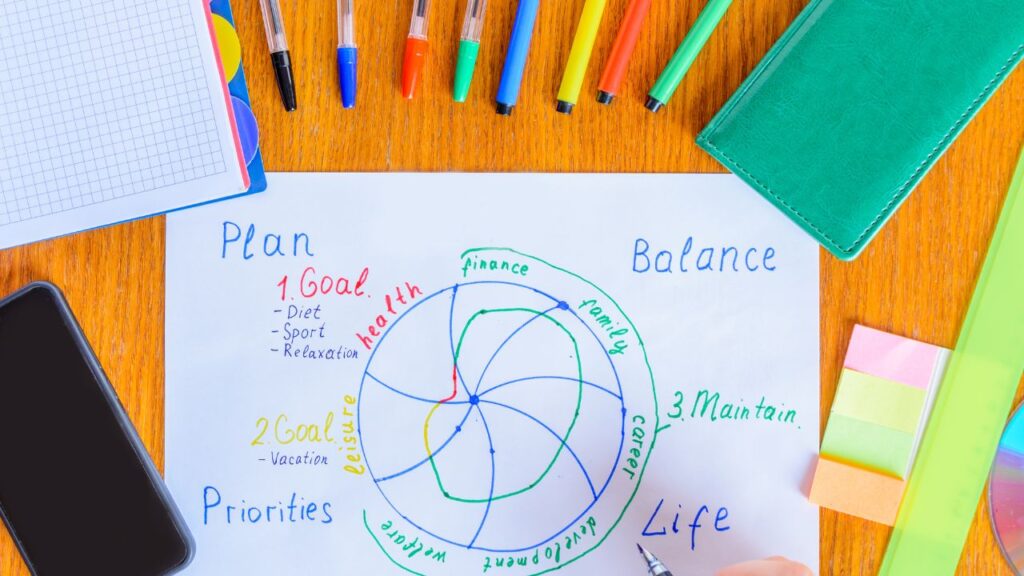 Plan
Balance
finance
1. Goal.
- Diet
- Sport
- Relaxation
health
family
3. Maintain.
2. Goal.
- Vacation
leisure
career
Priorities
Life
welfare
development